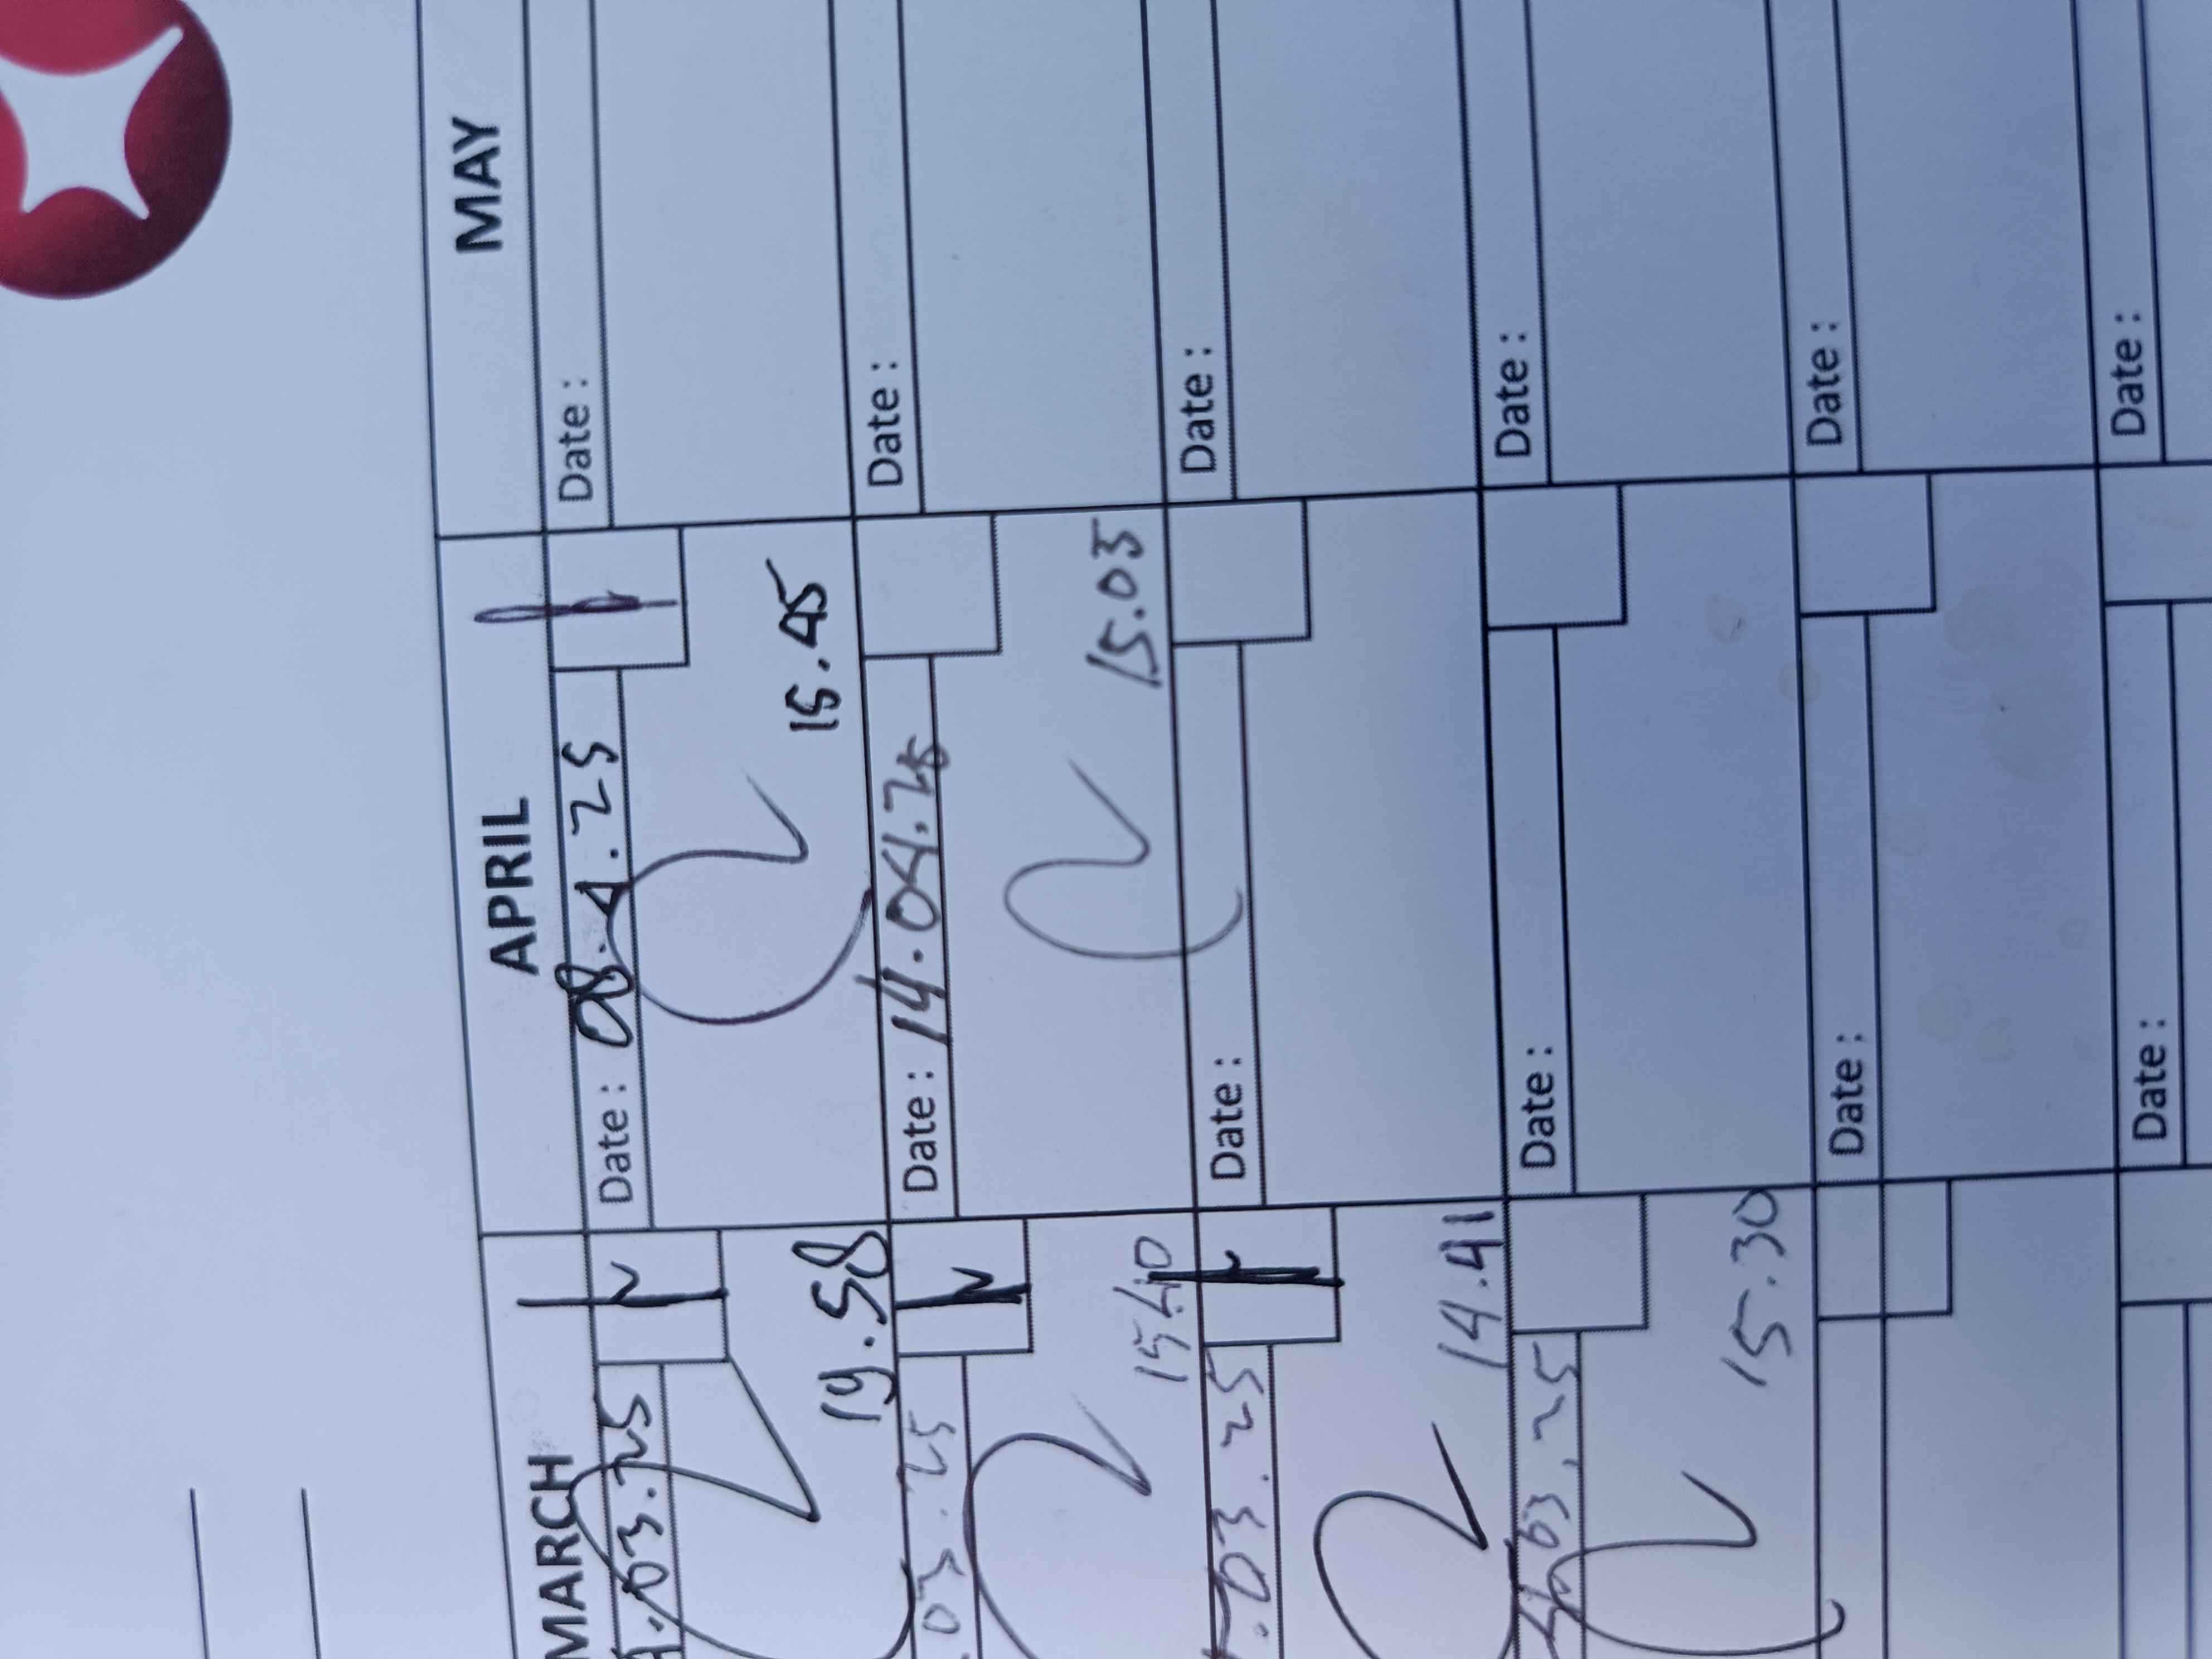 MARCH APRIL MAY
.03.25 Date : 08.4.25 Date :
19.58 15.45
03.25 Date : 14.04.25 Date :
15.40 15.03
.03.25 Date : Date :
14.41
03.25 Date : Date :
15.30
Date : Date :
Date : Date :